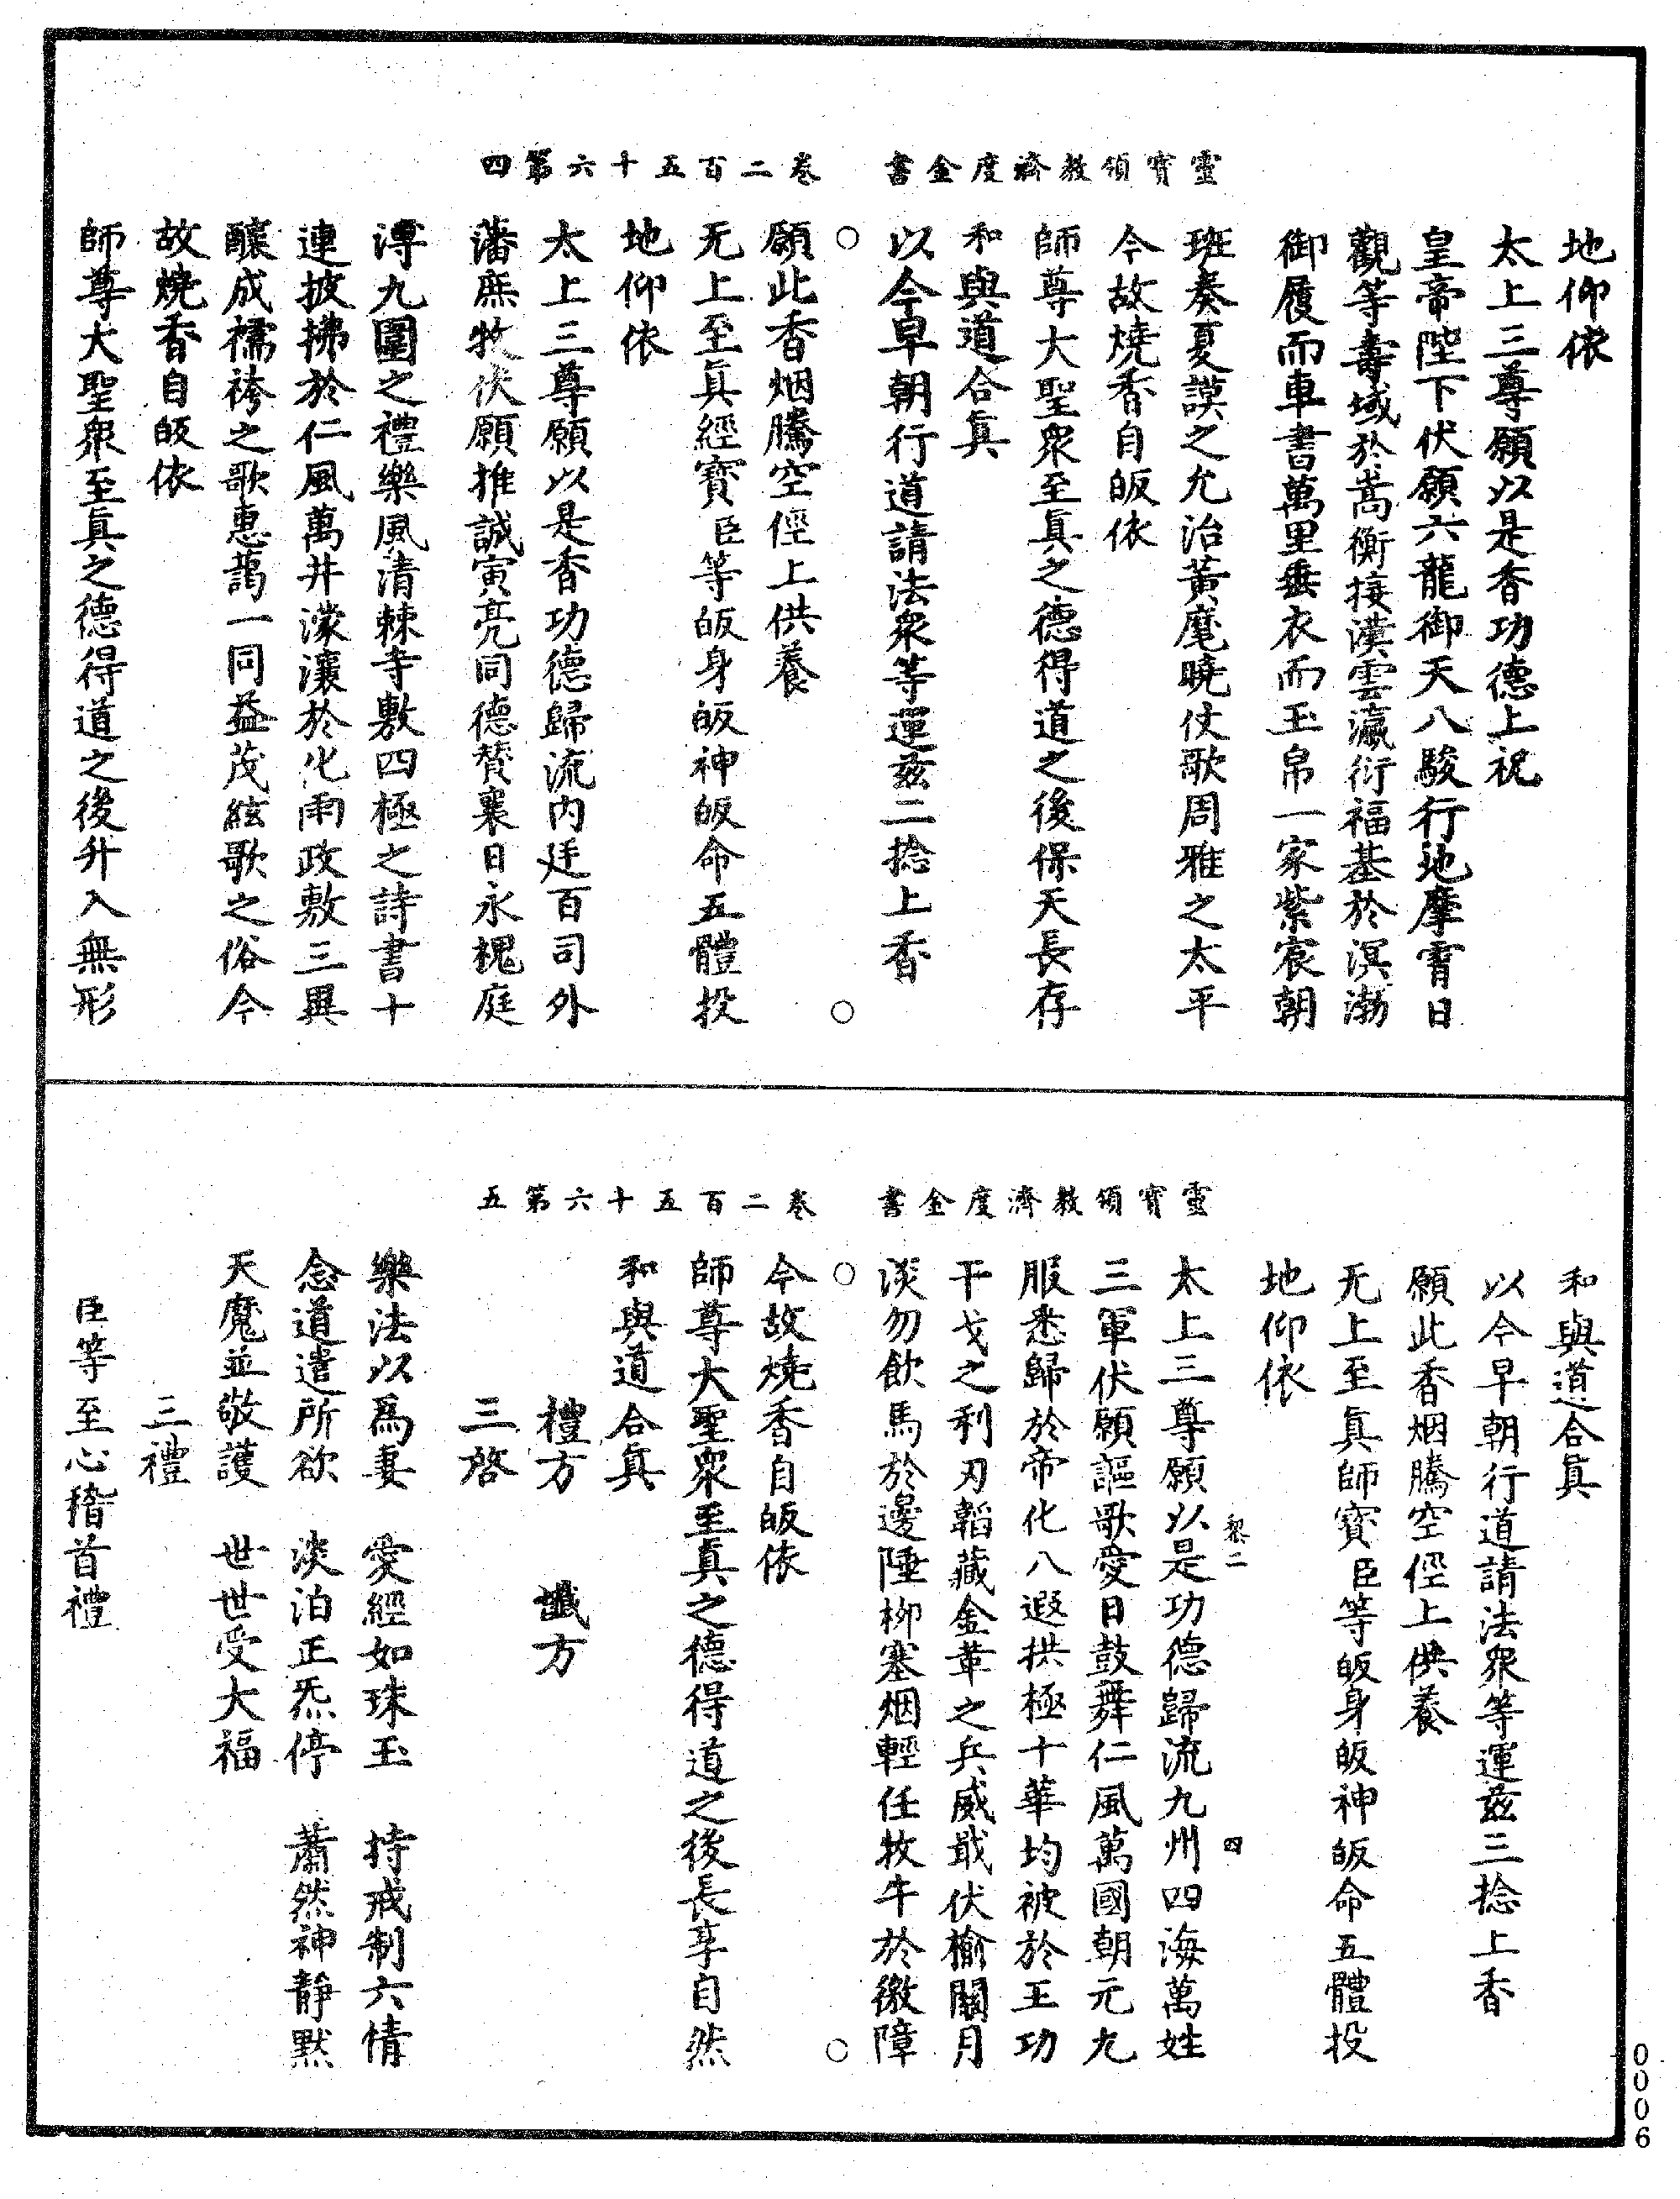 靈寶領教濟度金書　卷二百五十六第四
地仰依
太上三尊願以是香功德上祝
皇帝陛下伏願六龍御天八駿行地摩霄日
觀等壽域於嵩衡接漢雲瀛衍福基於溟渤
御履而車書萬里垂衣而玉帛一家紫宸朝
班奏夏謨之允治黃麾曉仗歌周雅之太平
今故燒香自皈依
師尊大聖眾至真之德得道之後保天長存
和與道合真
以今早朝行道請法眾等運茲二捻上香
願此香烟騰空徑上供養
无上至真經寶臣等皈身皈神皈命五體投
地仰依
太上三尊願以是香功德歸流內廷百司外
藩庶牧伏願推誠寅亮同德贊襄日永槐庭
溥九圍之禮樂風清棘寺敷四極之詩書十
連披拂於仁風萬井濛瀼於化雨政敷三異
釀成襦袴之歌惠藹一同益茂絃歌之俗今
故燒香自皈依
師尊大聖眾至真之德得道之後升入無形
靈寶領教濟度金書　卷二百五十六第五
和與道合真
以今早朝行道請法眾等運茲三捻上香
願此香烟騰空徑上供養
无上至真師寶臣等皈身皈神皈命五體投
地仰依
四
太上三尊願以是功德歸流九州四海萬姓
三軍伏願謳歌愛日鼓舞仁風萬國朝元九
服悉歸於帝化八遐拱極十華均被於王功
干戈之利刃韜藏金革之兵威戢伏榆關月
淡勿飲馬於邊陲柳塞烟輕任牧牛於徼障
今故燒香自皈依
師尊大聖眾至真之德得道之後長享自然
和與道合真
禮方　懺方
三啓
樂法以為妻　愛經如珠玉　持戒制六情
念道遣所欲　淡泊正炁停　蕭然神靜默
天魔並敬護　世世受大福
三禮
臣等至心稽首禮
0006